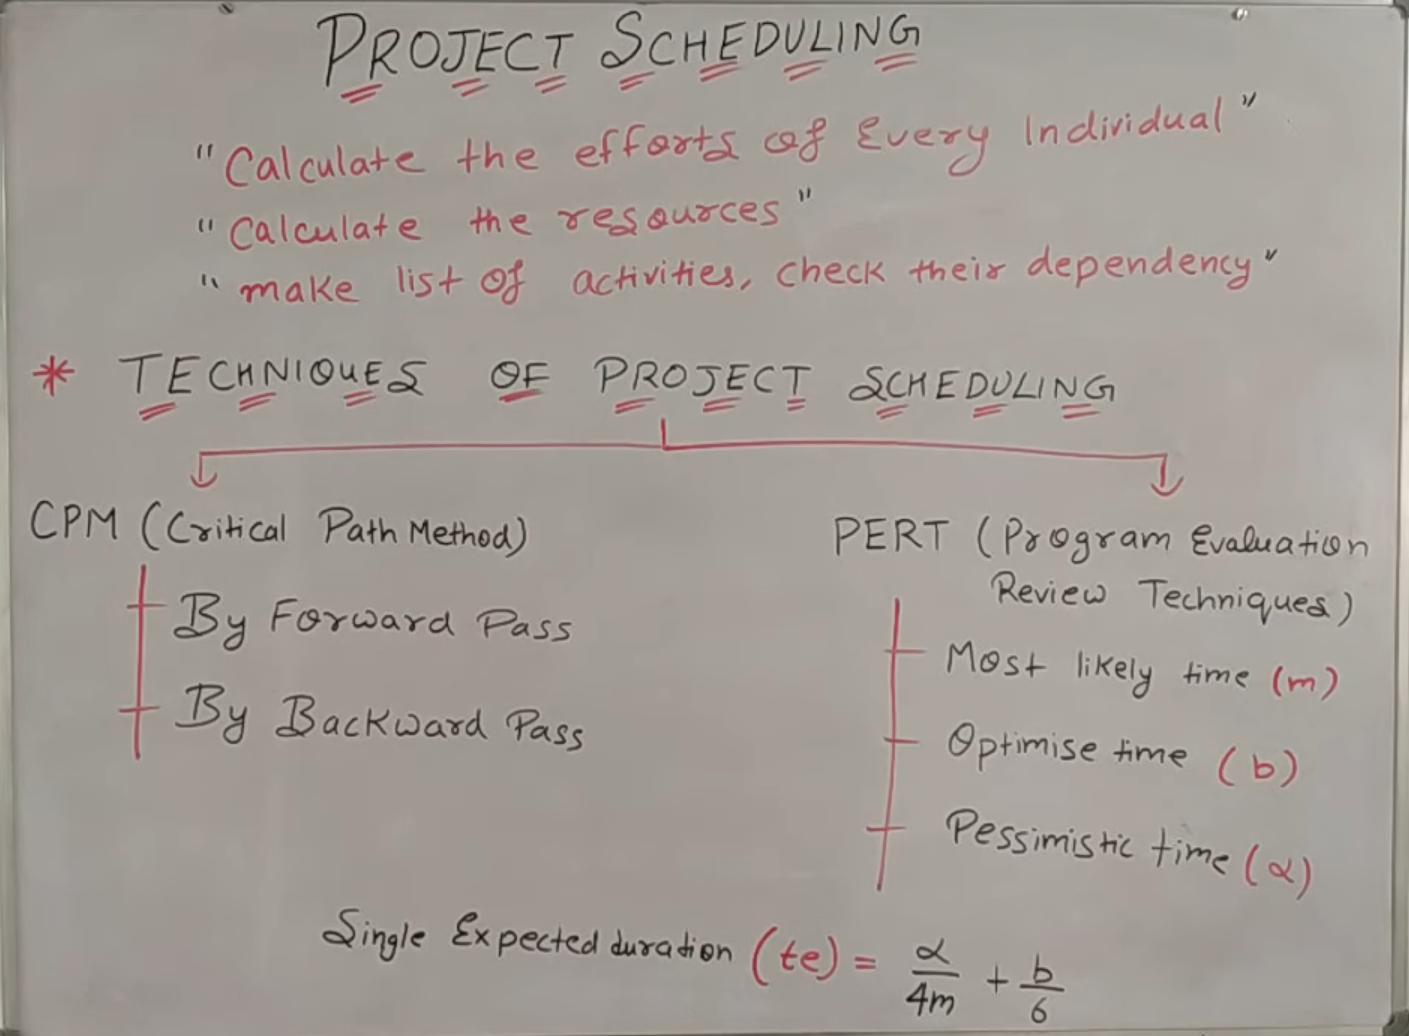 PROJECT SCHEDULING
"Calculate the efforts of Every Individual"
"Calculate the resources"
"make list of activities, check their dependency"
* TECHNIQUES OF PROJECT SCHEDULING
CPM (Critical Path Method)
By Forward Pass
By Backward Pass
PERT (Program Evaluation
Review Techniques)
Most likely time (m)
Optimise time (b)
Pessimistic time (α)
Single Expected duration (te) = α/4m + b/6